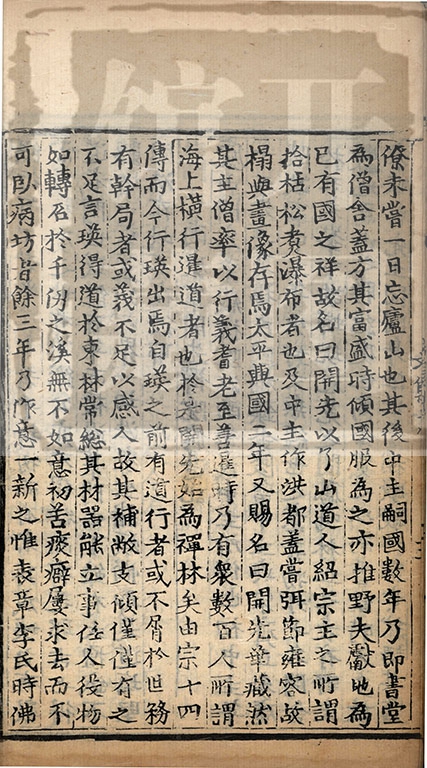 僚未嘗一日忘廬山也其後中主嗣國數年乃即書堂
為僧舍蓋方其富盛時傾國服為之亦推野夫獻地為
已有國之祥故名曰開先以了山道人紹宗主之所謂
拾枯松煑瀑布者也及中主作洪都蓋嘗弭節雍容故
榻與畫像存焉太平興國二年又賜名曰開先華藏然
其主僧率以行義耆老至善暹時乃有衆數百人所謂
海上橫行暹道者也於是開先始為禪林矣由宗十四
傳而今行瑛出焉自瑛之前有道行者或不屑於世務
有幹局者或義不足以感人故其補敝支傾僅僅有之
不足言瑛得道於東林常總其材器能立事任人役物
如轉石於千仞之溪無不如意初苦痰癖屢求去而不
可臥病坊者餘三年乃作意一新之惟表章李氏時佛